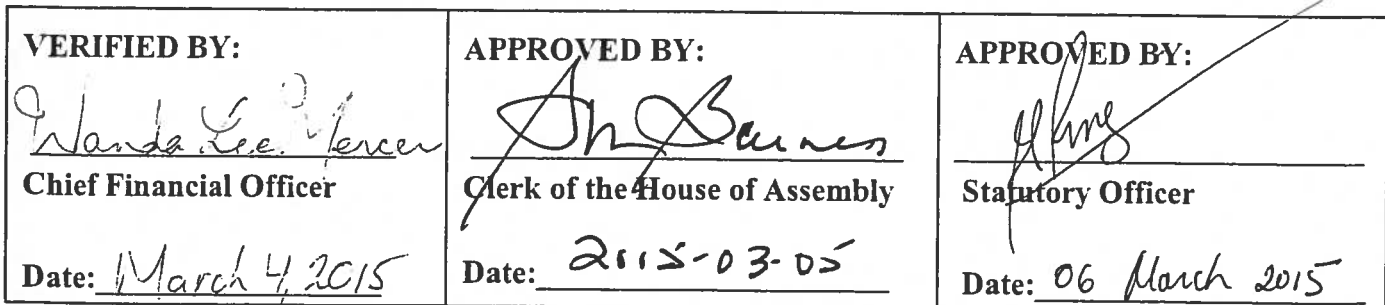 VERIFIED BY:
Wanda Lee Mercer
Chief Financial Officer
Date: March 4, 2015
APPROVED BY:
Barnes
Clerk of the House of Assembly
Date: 2015-03-05
APPROVED BY:
King
Statutory Officer
Date: 06 March 2015